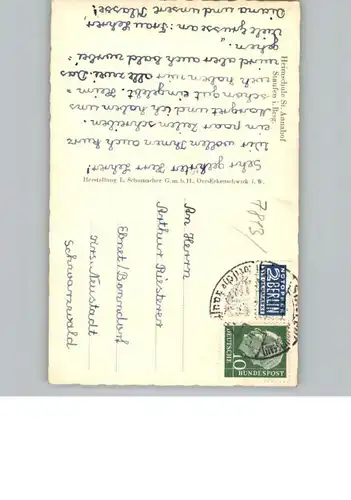 Heimschule St. Annahof
Staufen i. Brsg.
Sehr geehrter Herr Lehrer!
Wir wollen Ihnen auch kurz
ein paar Zeilen schreiben.
Margret und ich haben uns
schon gut eingelebt. Heim =
weh haben wir alle zwei. Das
wird aber auch bald vorbei
gehen.
Viele Grüsse an: Frau Lehrer
Diana und unsere Klasse!
Herstellung L. Schumacher G.m.b.H., Oer-Erkenschwick i. W.
7813/
NOTOPFER
2 BERLIN
STEUERMARKE
DEUTSCHE
BUNDESPOST
10
An Herrn
Arthur Riesterer
Ebnet/Bonndorf
Krs. Neustadt
Schwarzwald